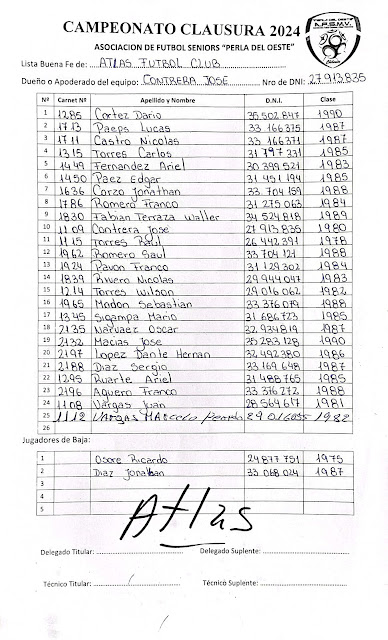 CAMPEONATO CLAUSURA 2024
ASOCIACION DE FUTBOL SENIORS "PERLA DEL OESTE"
Lista Buena Fe de: ATLAS FUTBOL CLUB
Dueño o Apoderado del equipo: CONTRERA JOSE Nro de DNI: 27.913.835
Nº Carnet Nº Apellido y Nombre D.N.I. Clase
1 1285 Cortez Dario 35 502 847 1990
2 1713 Paeps Lucas 33 166 375 1987
3 1711 Castro Nicolas 33 166 371 1987
4 1315 Torres Carlos 31 797 231 1985
5 1449 Fernandez Ariel 30 399 521 1983
6 1450 Paez Edgar 31 451 194 1985
7 1636 Corzo Jonathan 33 704 159 1988
8 1786 Romero Franco 31 275 063 1984
9 1830 Fabian Terraza Waller 34 524 818 1989
10 1109 Contrera Jose 27 913 835 1980
11 1115 Torres Raul 26 442 391 1978
12 1962 Romero Saul 33 704 121 1988
13 1924 Pavon Franco 31 129 302 1984
14 1839 Rivero Nicolas 29 944 047 1983
15 1214 Torres Wilson 29 016 062 1982
16 1965 Mondon Sebastian 33 376 079 1988
17 1345 Sigampa Mario 31 686 723 1985
18 2135 Narvaez Oscar 32 934 819 1987
19 2132 Macias Jose 35 283 128 1990
20 2197 Lopez Dante Hernan 32 492 380 1986
21 2188 Diaz Sergio 33 169 648 1987
22 1295 Ruarte Ariel 31 488 765 1985
23 2196 Aguero Franco 33 376 272 1988
24 1108 Vargas Juan 28 564 617 1981
25 1112 VARGAS MARCELO 1982
26
Jugadores de Baja:
1 Osore Ricardo 24 877 751 1975
2 Diaz Jonathan 33 068 024 1987
3
4
5
Atlas
Delegado Titular: Delegado Suplente:
Técnico Titular: Técnico Suplente: